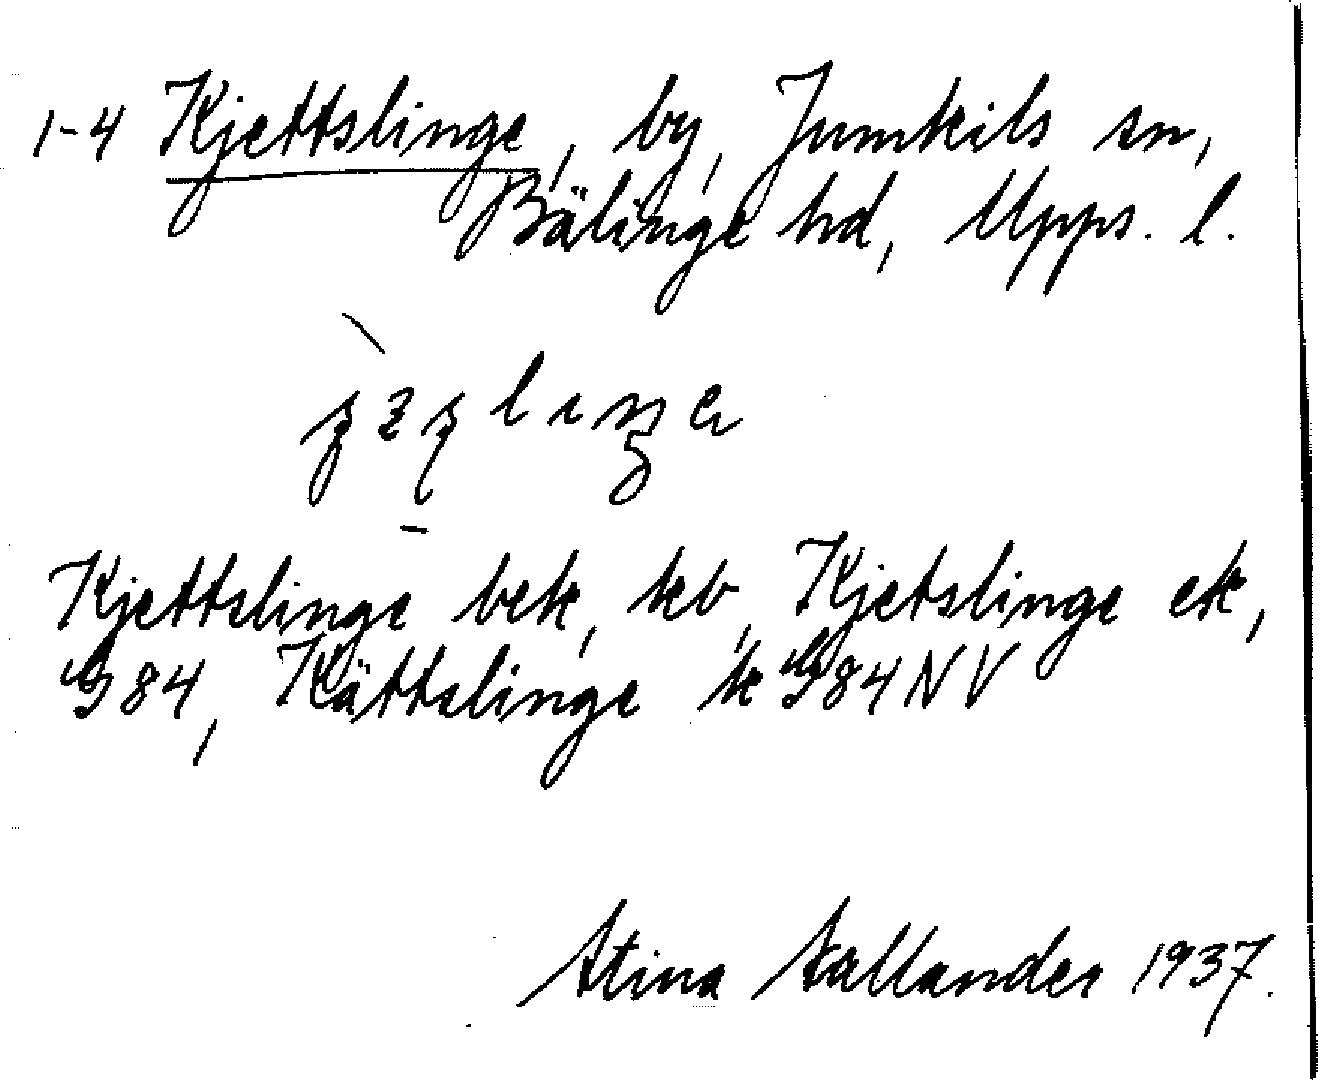 1-4 Kjettslinge, by, Jumkils sn,
Bälinge hd, Upps. l.
Kjettslinge bek, kb, Kjetslinge ek,
G 84, Kättslinge k G 84 NV
Stina Sallander 1937.